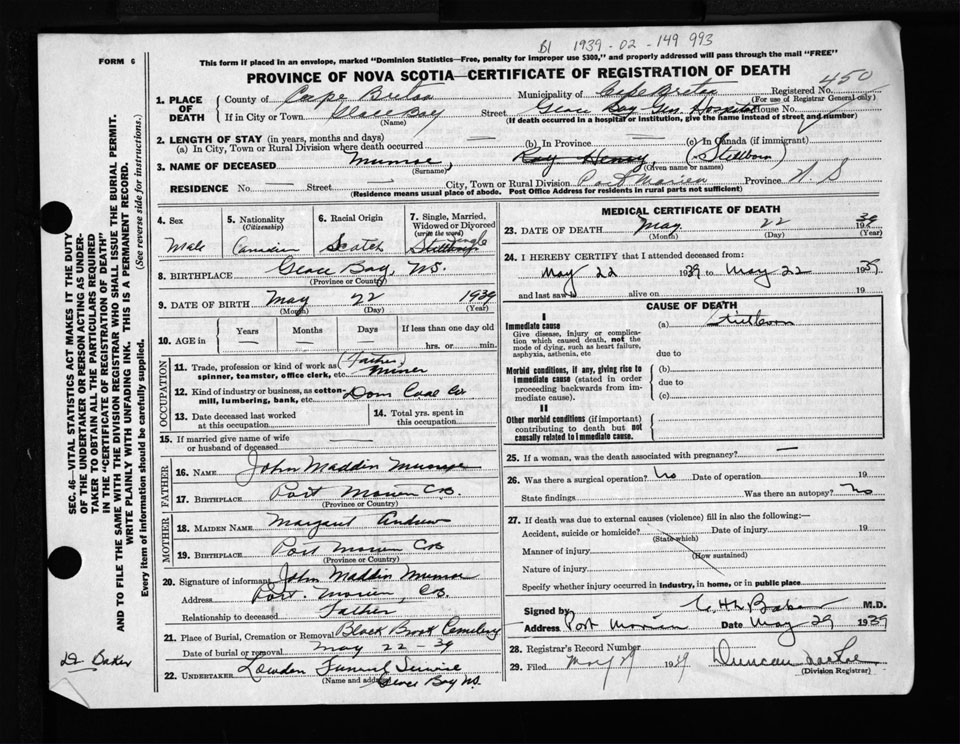 B1 1939-02-149 993
FORM 6
This form if placed in an envelope, marked "Dominion Statistics—Free, penalty for improper use $300," and properly addressed will pass through the mail "FREE"
PROVINCE OF NOVA SCOTIA—CERTIFICATE OF REGISTRATION OF DEATH
450
1. PLACE OF DEATH
County of Cape Breton Municipality of Cape Breton Registered No.
(For use of Registrar General only)
If in City or Town Glace Bay Street Glace Bay Gen. Hospital House No.
(Name) (If death occurred in a hospital or institution, give the name instead of street and number)
2. LENGTH OF STAY (in years, months and days)
(a) In City, Town or Rural Division where death occurred (b) In Province (c) In Canada (if immigrant)
3. NAME OF DECEASED Munroe, Roy Henry, (Stillborn)
(Surname) (Given name or names)
RESIDENCE No. — Street — City, Town or Rural Division Port Morien Province N.S
(Residence means usual place of abode. Post Office Address for residents in rural parts not sufficient)
4. Sex Male
5. Nationality (Citizenship) Canadian
6. Racial Origin Scotch
7. Single, Married, Widowed or Divorced (write the word) Stillborn Single
8. BIRTHPLACE Glace Bay, N.S.
(Province or Country)
9. DATE OF BIRTH May 22 1939
(Month) (Day) (Year)
10. AGE in Years — Months — Days — If less than one day old
hrs. or min.
OCCUPATION
11. Trade, profession or kind of work as spinner, teamster, office clerk, etc. (Father) Miner
12. Kind of industry or business, as cotton-mill, lumbering, bank, etc. Dom Coal Co
13. Date deceased last worked at this occupation
14. Total yrs. spent in this occupation
15. If married give name of wife or husband of deceased
FATHER
16. NAME John Maddin Munroe
17. BIRTHPLACE Port Morien C.B.
(Province or Country)
MOTHER
18. MAIDEN NAME Margaret Andrew
19. BIRTHPLACE Port Morien C.B
(Province or Country)
20. Signature of informant John Maddin Munroe
Address Port. Morien, C.B.
Relationship to deceased Father
21. Place of Burial, Cremation or Removal Black Brook Cemetery
Date of burial or removal May 22-39
22. UNDERTAKER Funeral Service
(Name and address) Glace Bay N.S.
MEDICAL CERTIFICATE OF DEATH
23. DATE OF DEATH May 22 39
(Month) (Day) (Year)
24. I HEREBY CERTIFY that I attended deceased from:
May 22 1939 to May 22 1939
and last saw h alive on 19
CAUSE OF DEATH
I
Immediate cause
Give disease, injury or complication which caused death, not the mode of dying, such as heart failure, asphyxia, asthenia, etc
(a) Stillborn
due to
Morbid conditions, if any, giving rise to immediate cause (stated in order proceeding backwards from immediate cause).
(b)
due to
(c)
II
Other morbid conditions (if important) contributing to death but not causally related to immediate cause.
25. If a woman, was the death associated with pregnancy? —
26. Was there a surgical operation? No Date of operation 19
State findings Was there an autopsy? No
27. If death was due to external causes (violence) fill in also the following:—
Accident, suicide or homicide? Date of injury 19
(State which)
Manner of injury
(How sustained)
Nature of injury
Specify whether injury occurred in industry, in home, or in public place
Signed by Baker M.D.
Address Port Morien Date May 29 1939
28. Registrar's Record Number
29. Filed May 1939 Duncan
(Division Registrar)
SEC. 46—VITAL STATISTICS ACT MAKES IT THE DUTY
OF THE UNDERTAKER OR PERSON ACTING AS UNDER-
TAKER TO OBTAIN ALL THE PARTICULARS REQUIRED
IN THE "CERTIFICATE OF REGISTRATION OF DEATH"
AND TO FILE THE SAME WITH THE DIVISION REGISTRAR WHO SHALL ISSUE THE BURIAL PERMIT.
WRITE PLAINLY WITH UNFADING INK. THIS IS A PERMANENT RECORD.
Every item of information should be carefully supplied. (See reverse side for instructions.)
Dr Baker